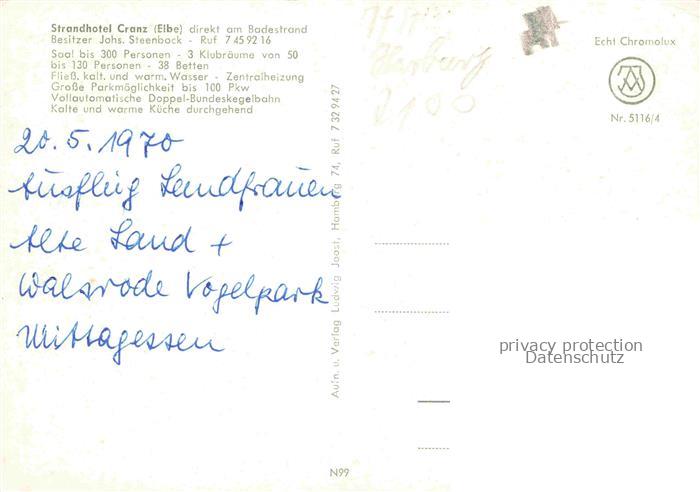 Strandhotel Cranz (Elbe) direkt am Badestrand
Besitzer Johs. Steenbock - Ruf 7 45 92 16
Saal bis 300 Personen - 3 Klubräume von 50
bis 130 Personen - 38 Betten
Fließ. kalt. und warm. Wasser - Zentralheizung
Große Parkmöglichkeit bis 100 Pkw
Vollautomatische Doppel-Bundeskegelbahn
Kalte und warme Küche durchgehend
20.5.1970
Ausflug Landfrauen
Alte Land +
Walsrode Vogelpark
Mittagessen
Aufn. u. Verlag Ludwig Joost, Hamburg 74, Ruf 7 32 94 27
N99
Harburg
2100
Echt Chromolux
Nr. 5116/4
privacy protection
Datenschutz